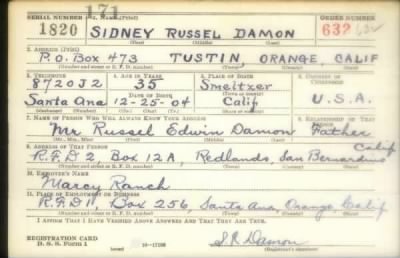 171
SERIAL NUMBER 1. NAME (Print) ORDER NUMBER
1820 SIDNEY RUSSEL DAMON 632 632
(First) (Middle) (Last)
2. ADDRESS (Print)
P.O. BOX 473 TUSTIN ORANGE, CALIF
(Number and street or R. F. D. number) (Town) (County) (State)
3. TELEPHONE 4. AGE IN YEARS 5. PLACE OF BIRTH 6. COUNTRY OF CITIZENSHIP
872032 35 Smeltzer
DATE OF BIRTH
Santa Ana 12-25-04 Calif U.S.A.
(Exchange) (Mo.) (Day) (Yr.) (State or country)
7. NAME OF PERSON WHO WILL ALWAYS KNOW YOUR ADDRESS 8. RELATIONSHIP OF THAT PERSON
Mr. Russel Edwin Damon Father
(Mr., Mrs., Miss) (First) (Middle) (Last)
9. ADDRESS OF THAT PERSON Calif
R.F.D 2, Box 12A, Redlands, San Bernardino
(Number and street or R. F. D. number) (Town) (County) (State)
10. EMPLOYER'S NAME
Marcy Ranch
11. PLACE OF EMPLOYMENT OR BUSINESS
R.F.D 1, Box 256, Santa Ana, Orange, Calif
(Number and street or R. F. D. number) (Town) (County) (State)
I AFFIRM THAT I HAVE VERIFIED ABOVE ANSWERS AND THAT THEY ARE TRUE.
REGISTRATION CARD
D. S. S. Form 1 16-17105 S.R. Damon
(Registrant's signature)